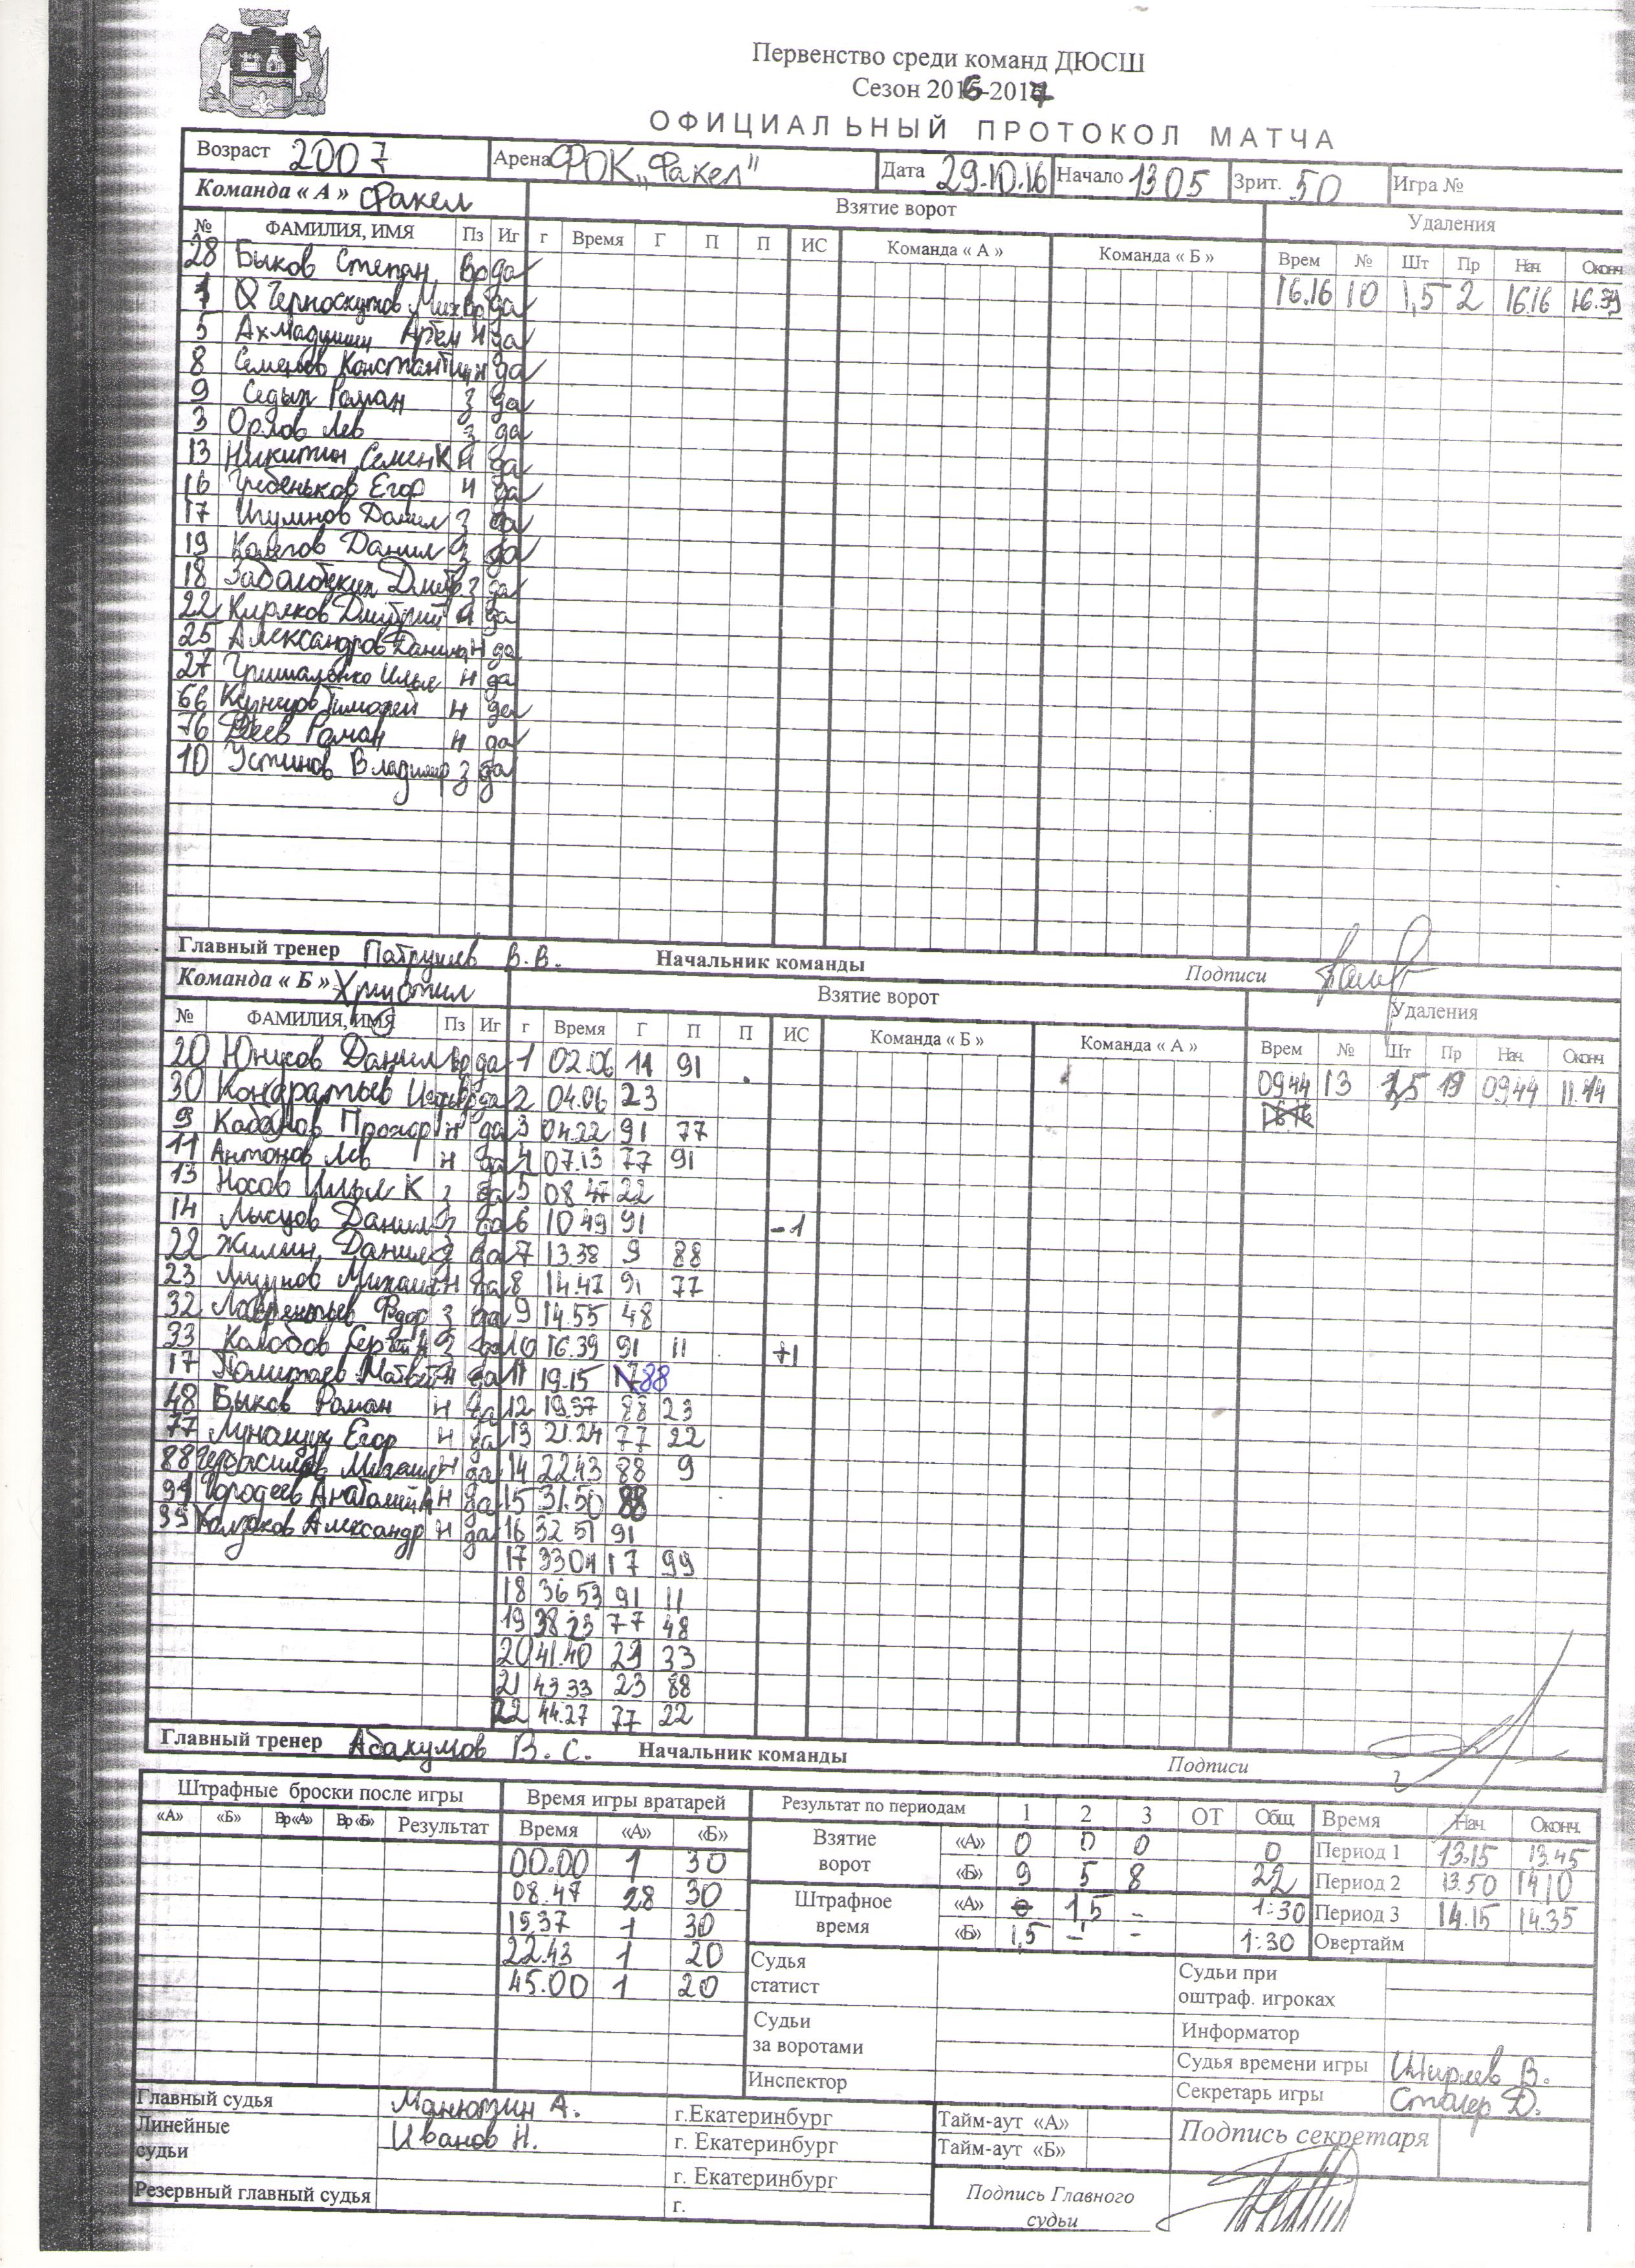 Первенство среди команд ДЮСШ
Сезон 2016-2017
ОФИЦИАЛЬНЫЙ ПРОТОКОЛ МАТЧА
Возраст 2007 Арена ФОК „Факел" Дата 29.10.16 Начало 1305 Зрит. 50 Игра №
Команда « А » Факел Взятие ворот Удаления
№ ФАМИЛИЯ, ИМЯ Пз Иг г Время Г П П ИС Команда « А » Команда « Б » Врем № Шт Пр Нач. Оконч
28 Быков Степан Вр да 16.16 10 1,5 2 16.16
1 Черноскутов Мих Вр да
5 Артем н да
8 Семенов Константин н да
9 Седых Роман з да
3 Орлов Лев з да
13 Никитин Семен К н да
16 Гребеньков Егор н да
17 Игумнов Данил з да
19 Колегов Данил з да
18 з да
22 Киряков Дмитрий н да
25 Александров Данила н да
27 Илья н да
66 Кузнецов Тимофей н да
76 Деев Роман н да
10 Устинов Владимир з да
Главный тренер Патрушев В.В. Начальник команды Подписи
Команда « Б » Хризотил Взятие ворот Удаления
№ ФАМИЛИЯ, ИМЯ Пз Иг г Время Г П П ИС Команда « Б » Команда « А » Врем № Шт Пр Нач. Оконч
20 Юников Данил вр да 1 02.06 11 91 0944 13 1,5 19 09.44 11.14
30 Кондратьев вр да 2 04.06 23
9 Кабанов Прохор н да 3 04.22 91 77
11 Антонов Лев н да 4 07.13 77 91
13 Носов Илья К з да 5 08 47 22
14 Лысцов Данил з да 6 10 49 91 -1
22 Жилин Данил з да 7 13.38 9 88
23 Михаил н да 8 14.47 91 77
32 Лаврентьев Федор з да 9 14.55 48
33 Колобов Сергей А з да 10 16.39 91 11 +1
17 Матвей н да 11 19.15 88
48 Быков Роман н да 12 19.37 88 23
77 Лунащук Егор н да 13 21.24 77 22
88 Герасимов Михаил н да 14 22.43 88 9
91 Гордеев Анатолий А н да 15 31.50 88
99 Колзаков Александр н да 16 32 51 91
17 33 04 17 99
18 36 53 91 11
19 38 23 77 48
20 41.40 23 33
21 43 33 23 88
22 44.27 77 22
Главный тренер Абакумов В. С. Начальник команды Подписи
Штрафные броски после игры Время игры вратарей Результат по периодам 1 2 3 ОТ Общ. Время Нач. Оконч.
«А» «Б» Вр «А» Вр «Б» Результат Время «А» «Б» Взятие ворот «А» 0 0 0 0 Период 1 13.15 13.45
00.00 1 30 «Б» 9 5 8 22 Период 2 13.50 14.10
08.47 28 30 Штрафное время «А» 1,5 - 1:30 Период 3 14.15 14.35
19.37 1 30 «Б» 1,5 - - 1:30 Овертайм
22.43 1 20 Судья статист Судьи при оштраф. игроках
45.00 1 20
Судьи за воротами Информатор
Судья времени игры Ширяев В.
Инспектор Секретарь игры Столер Д.
Главный судья Манюхин А. г.Екатеринбург Тайм-аут «А» Подпись секретаря
Линейные судьи Иванов Н. г. Екатеринбург Тайм-аут «Б»
г. Екатеринбург Подпись Главного судьи
Резервный главный судья г.